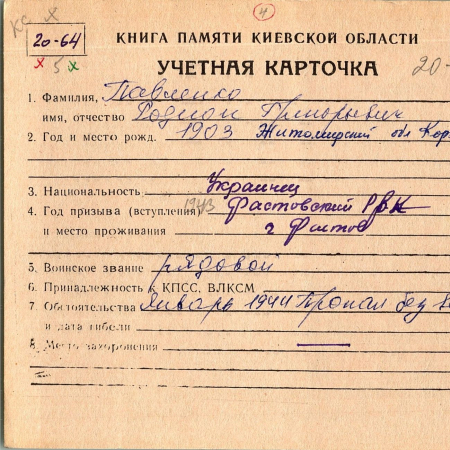 КС X
4
20-64
КНИГА ПАМЯТИ КИЕВСКОЙ ОБЛАСТИ
x 5 x
УЧЕТНАЯ КАРТОЧКА
20-
1. Фамилия, Павленко
имя, отчество Родион Григорьевич
2. Год и место рожд. 1903 Житомирский обл Кор
3. Национальность Украинец
4. Год призыва (вступления) 1943 Фастовский РВК
и место проживания г Фастов
5. Воинское звание рядовой
6. Принадлежность к КПСС, ВЛКСМ
7. Обстоятельства Январь 1944 Пропал без
и дата гибели
8. Место захоронения